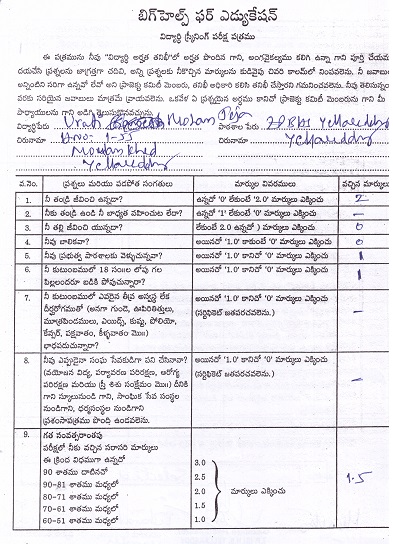 బిగ్‌హెల్ప్ ఫర్ ఎడ్యుకేషన్
విద్యార్థి స్క్రీనింగ్ పరీక్ష పత్రము
ఈ పత్రమును నీవు "విద్యార్థి అర్హత తనిఖీ"లో అర్హత పొందిన గాని, అంగవైకల్యము కలిగి ఉన్నా గాని పూర్తి చేయుము
దయచేసి ప్రశ్నలను జాగ్రత్తగా చదివి, అన్ని ప్రశ్నలకు నీకొచ్చిన మార్కులను కుడివైపు చివరి కాలమ్‌లో నింపవలెను. నీ జవాబు
అన్నింటిని సరిగా ఉన్నవో లేవో అని ప్రాజెక్టు కమిటీ మెంబరు, తనిఖీ అధికారి కలిసి తనిఖీ చేస్తారని గమనించవలెను. నీవు తెలిసున్నంత
వరకు సరియైన జవాబులు మాత్రమే వ్రాయవలెను. ఒకవేళ ఏ ప్రశ్నయైన అర్థము కానిచో ప్రాజెక్టు కమిటీ మెంబరును గాని మీ
పాధ్యాయులను గాని అడిగి తెలుసుకొనవచ్చును.
విద్యార్థిపేరు Mohan పాఠశాల పేరు ZPBHS Yellareddy
చిరునామా H.NO: 1-55 చిరునామా
Yellareddy
వ.నెం. ప్రశ్నలు మరియు పడపోత సంగతులు మార్కుల వివరములు వచ్చిన మార్కులు
1. నీ తండ్రి జీవించి ఉన్నాడా? ఉన్నచో '0' లేకుంటే '2.0' మార్కులు ఎక్కించు 2
2. నీకు తండ్రి ఉండి నీ బాధ్యత వహించుట లేదా? ఉన్నచో '1' లేకుంటే '0' మార్కులు ఎక్కించు –
3. నీ తల్లి జీవించి యున్నదా? లేకుంటే 2.0 ఉన్నచో ) మార్కులు ఎక్కించు 0
4. నీవు బాలికవా? అయినచో '1.0' కాకుంటే '0' మార్కులు ఎక్కించు 0
5. నీవు ప్రభుత్వ పాఠశాలకు వెళ్ళుచున్నావా? అయినచో '1.0' కానిచో '0' మార్కులు ఎక్కించు 1
6. నీ కుటుంబములో 18 సం॥ల లోపు గల అయినచో '1.0' కానిచో '0' మార్కులు ఎక్కించు 1
పిల్లలందరూ బడికి పోవుచున్నారా?
7. నీ కుటుంబములో ఎవరైన తీవ్ర అస్వస్థ లేక అయినచో '1.0' కానిచో '0' మార్కులు ఎక్కించు –
దీర్ఘరోగముతో (అనగా గుండె, ఊపిరితిత్తులు, (సర్టిఫికెట్ జతపరచవలెను.)
మూత్రపిండములు, ఎయిడ్స్, కుష్ఠు, పోలియో,
కేన్సర్, పక్షవాతం, కీళ్ళవాతం మొ॥)
బాధపడుచున్నారా?
8. నీవు ఎప్పుడైనా సంఘ సేవకుడిగా పని చేసినావా? అయినచో '1.0' కానిచో '0' మార్కులు ఎక్కించు –
(వయోజన విద్య, పర్యావరణ పరిరక్షణ, ఆరోగ్య (సర్టిఫికెట్ జతపరచవలెను.)
పరిరక్షణ మరియు స్త్రీ శిశు సంక్షేమం మొ॥) దీనికి
గాని స్కూలునుండి గాని, సాంఘిక సేవ సంస్థల
నుండిగాని, ధర్మసంస్థల నుండిగాని
ప్రశంసాపత్రము పొంది ఉండవలెను.
9. గత సంవత్సరాంతపు
పరీక్షలో నీకు వచ్చిన సరాసరి మార్కులు
ఈ క్రింద విధముగా ఉన్నచో 3.0
90 శాతము దాటినచో 2.5 1.5
90-81 శాతము మధ్యలో 2.0 మార్కులు ఎక్కించు
80-71 శాతము మధ్యలో 1.5
70-61 శాతము మధ్యలో 1.0
60-51 శాతము మధ్యలో